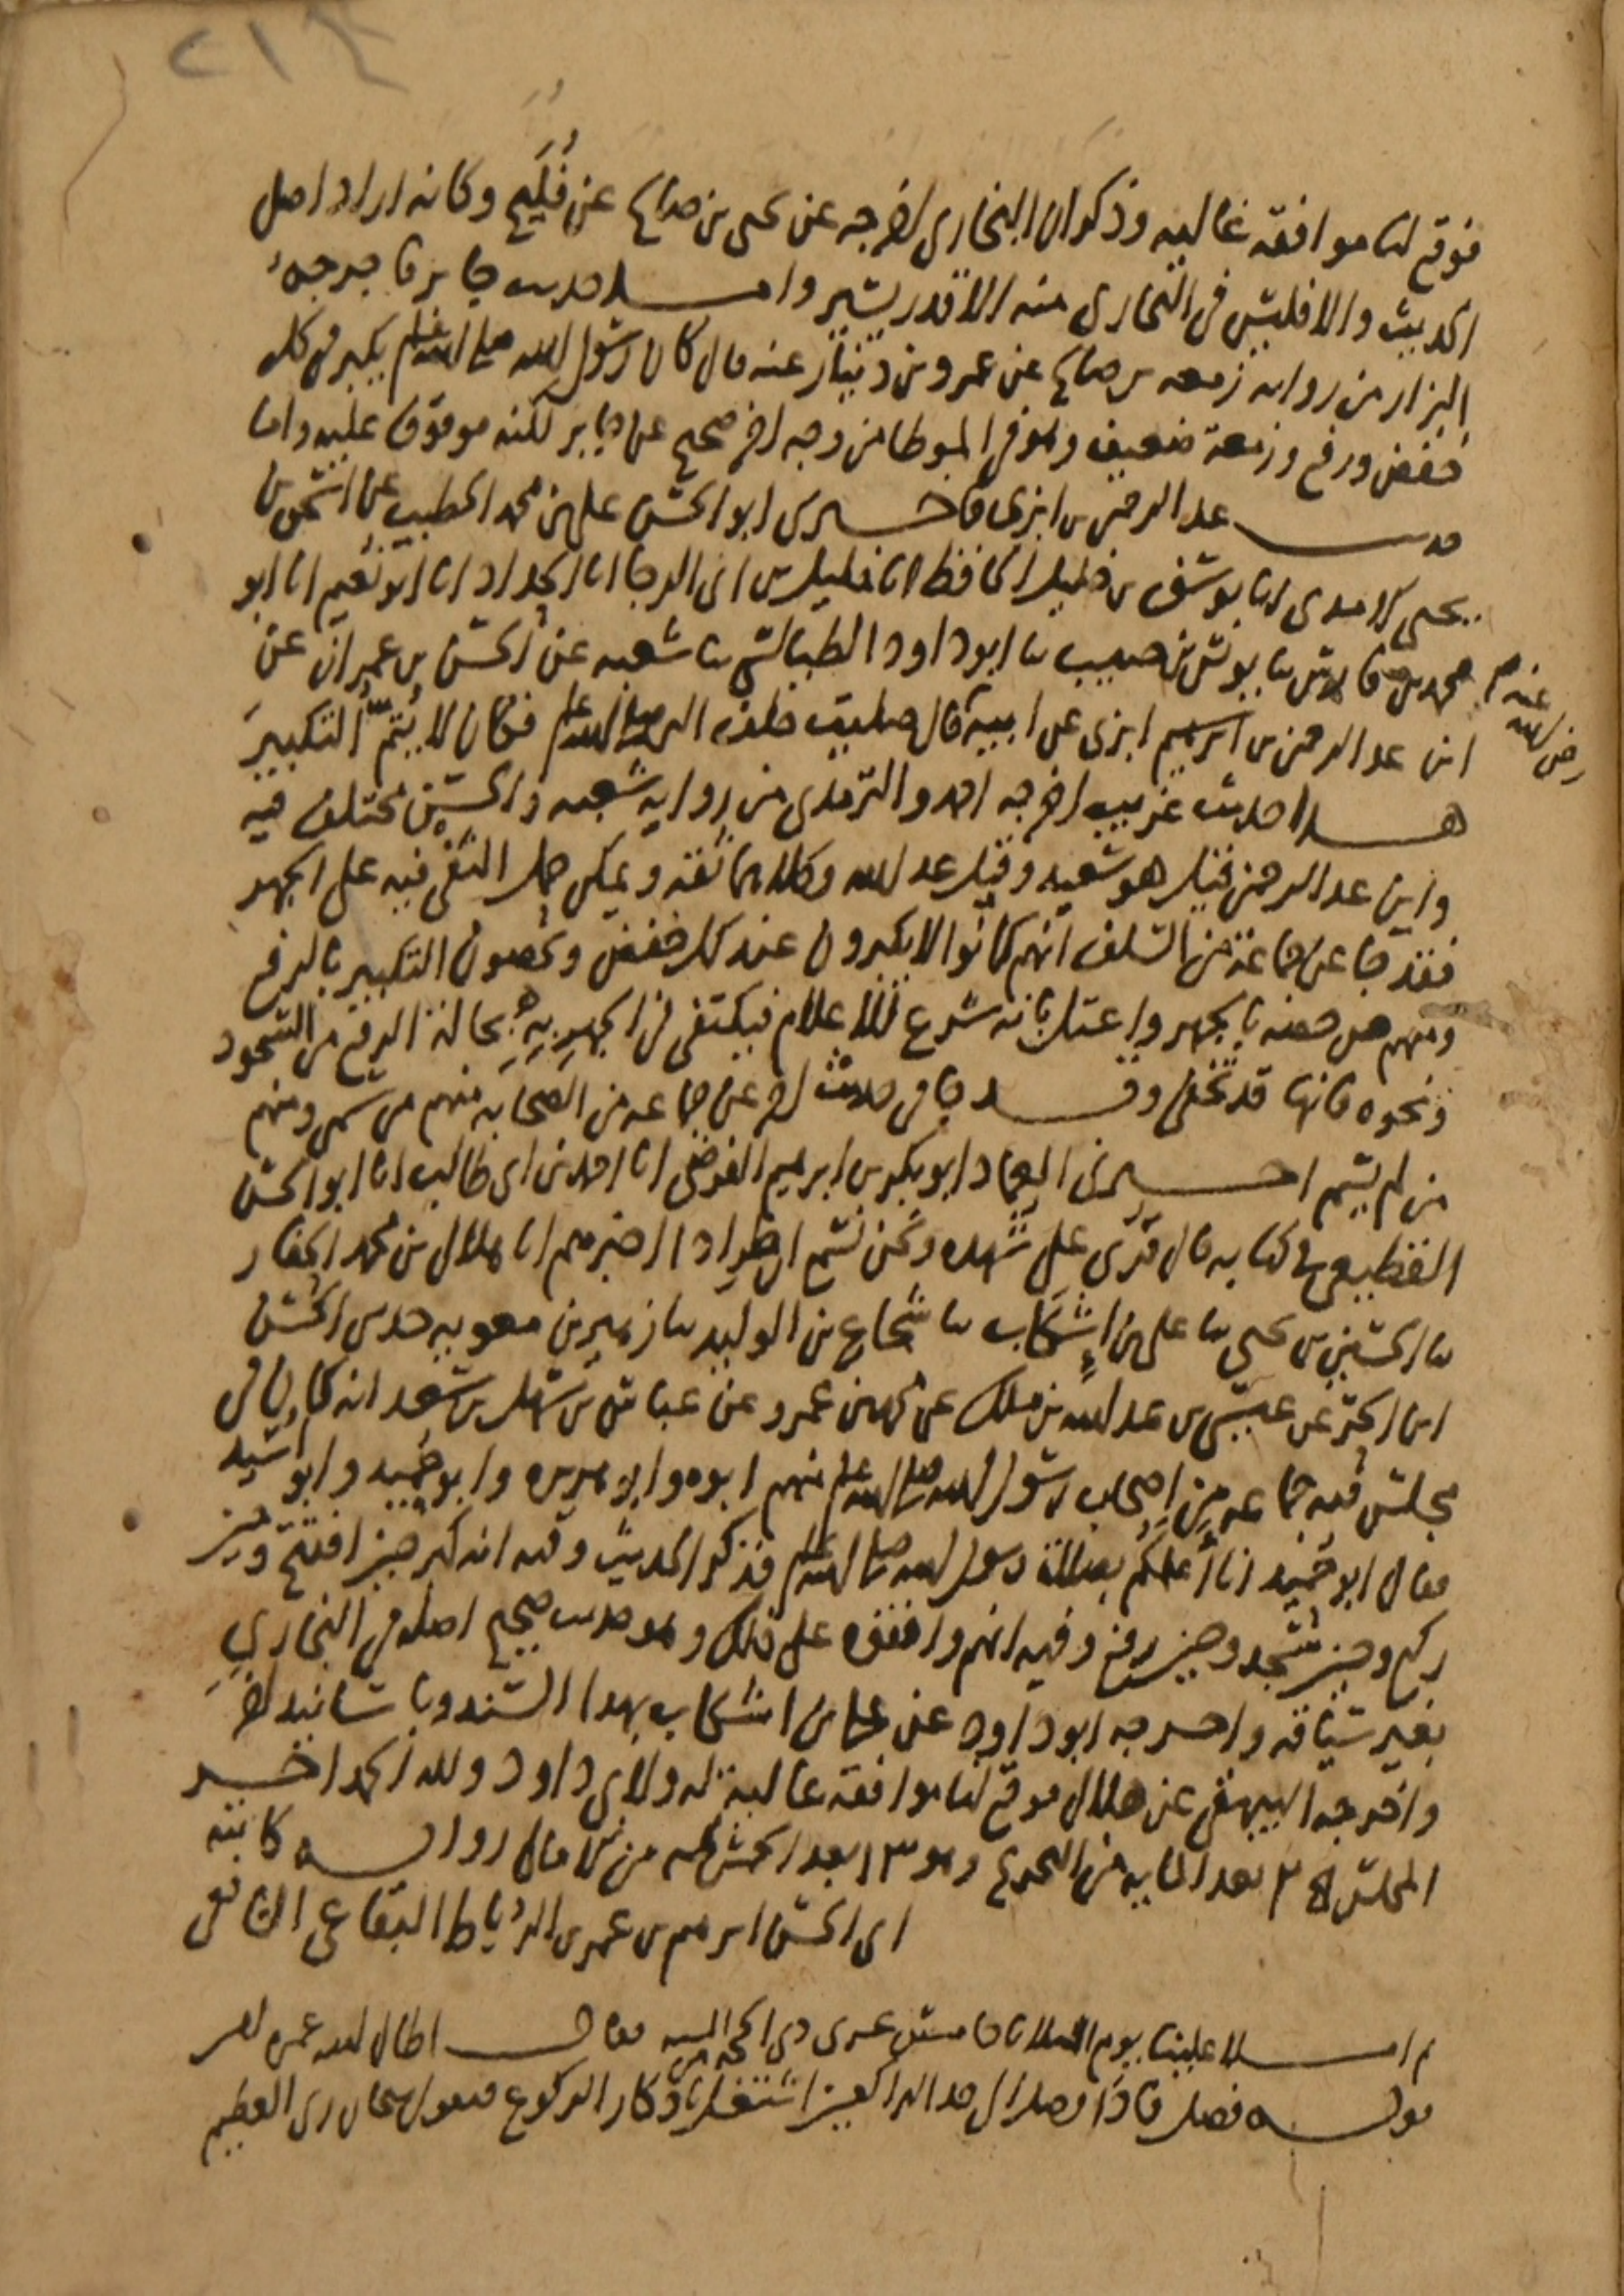 ٢١٤
فوقع لنا موافقة عالية وذكر ان البخاري اخرجه عن يحيى بن صالح عن فُلَيح وكانه اراد اصل
الحديث والا فليس في البخاري منه الا قدر يسير واما حديث جابر فاخرجه
البزار من رواية زمعة بن صالح عن عمرو بن دينار عنه قال كان رسول الله صلى الله عليه وسلم يكبر في كل
خفض ورفع وزمعة ضعيف وهو في الموطا من وجه اخر صحيح عن جابر لكنه موقوف عليه واما
حديث عبد الرحمن بن ابزى فاخبرني ابو الحسن علي بن محمد الخطيب عن اسحق بن
يحيى الامدي انا يوسف بن خليل الحافظ انا خليل بن ابي الرجا انا الحداد انا ابو نعيم انا ابو
محمد بن فارس نا يونس بن حبيب نا ابو داود الطيالسي نا شعبة عن الحسن بن عمران عن
رضي الله عنه
ابن عبد الرحمن بن ابزى عن ابيه قال صليت خلف النبي صلى الله عليه وسلم فكان لا يُتمُّ التكبيرَ
هذا حديث غريب اخرجه احمد والترمذي من رواية شعبة والحسن مختلف فيه
وابن عبد الرحمن قيل هو سعيد وقيل عبد الله وكلاهما ثقة ويمكن حمل النفي فيه على الجهر
فقد جا عن جماعة من السلف انهم كانوا لا يكبرون عند كل خفض ويخصون التكبير بالرفع
ومنهم من خصه بالجهر واعتل بانه شرع للاعلام فيكتفى في الجهرِ بهِ بحالة الرفع من السجود
ونحوه فانها قد تخفى وقد جا في حديث اخر عن جماعة من الصحابة منهم من سمي ومنهم
من لم يسم اخبرني العماد ابو بكر بن ابرهيم الفرضي انا احمد بن ابي طالب انا ابو الحسن
القطيعي في كتابه قال قرى على شهده ونحن نسمع ان طرادا اخبرهم انا هلال بن محمد الحفار
نا الحسين بن يحيى نا علي بن إشكاب نا شجاع بن الوليد نا زهير بن معوية حدثني الحسن
ابن الحر عن عيسى بن عبد الله بن ملك عن محمد بن عمرو عن عباس بن سهل بن سعد انه كان في
مجلس فيه جماعة من اصحاب رسول الله صلى الله عليه وسلم منهم ابوه وابو هريرة وابو حُميد وابو اسيد
فقال ابو حُميد انا أعلمُكم بصلاة رسول الله صلى الله عليه وسلم فذكر الحديث وفيه انه كبر حين افتتح وحين
ركع وحين سجد وحين رفع وفيه انهم وافقوه على ذلك وهو حديث صحيح اصله في البخاري
بغير سياقه واخرجه ابو داود عن علي بن اشكاب بهذا السند وباسانيد اخر
واخرجه البيهقي عن هلال فوقع لنا موافقة عالية له ولابي داود ولله الحمد اخر
المجلس بعد الماية من التخريج وهو ١٣ بعد الخمس ماية من الامالي رواية كاتبه
ابي الحسن ابرهيم بن عمر بن الرُّباط البقاعي الشافعي
ثم املا علينا يوم الثلاثا خامس عشري ذي الحجة من السنه فقال اطال الله عمره
قوله فصل فاذا وصل الى حد الراكعين اشتغل باذكار الركوع فيقول سبحان ربي العظيم